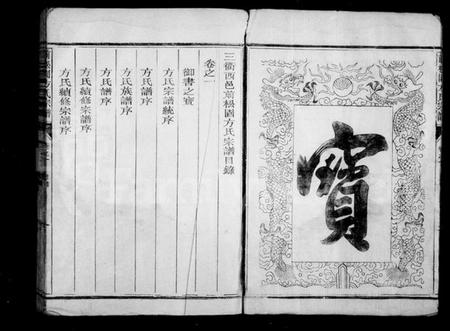 寶
三衢西邑前松園方氏宗譜目錄
卷之一
御書之寶
方氏宗譜統序
方氏族譜序
方氏譜序
方氏續修宗譜序
方氏續修宗譜序